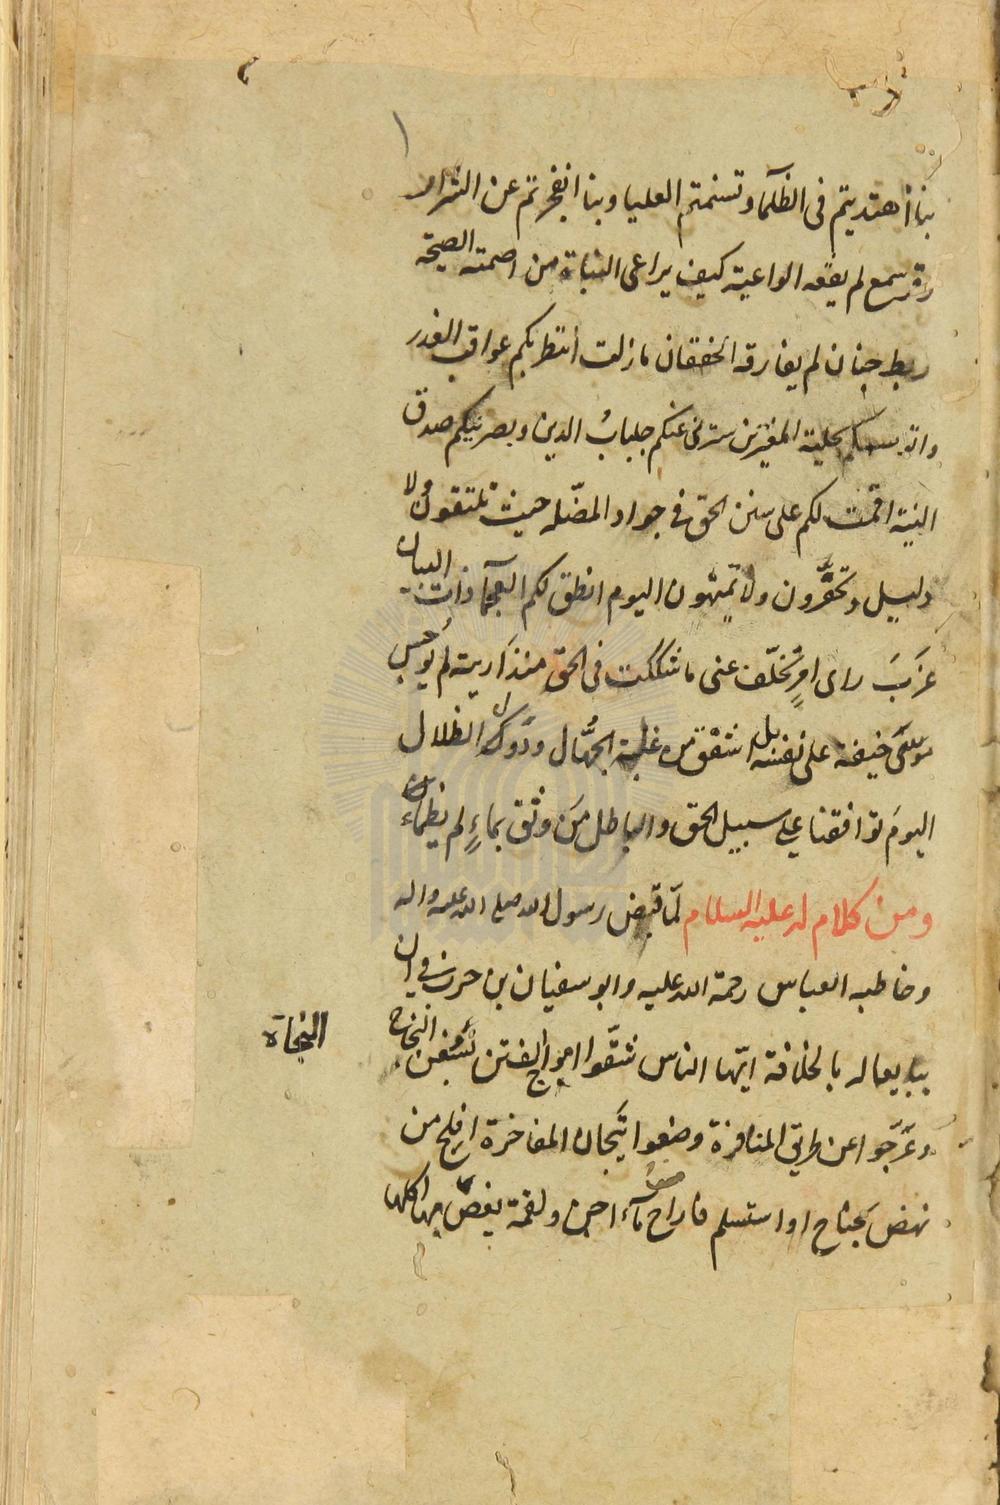 بنا اهتديتم فى الظلمآء وتسنمتم العليا وبنا انفجرتم عن السرار
وقر سمع لم يفقه الواعية كيف يراعى النباة من اصمته الصيحة
ربط جنان لم يفارقه الخفقان ما زلت أنتظر بكم عواقب الغدر
واتوسمكم بحلية المغترين سترنى عنكم جلباب الدين وبصرنيكم صدق
النية اقمت لكم على سنن الحق فى جواد المضلة حيث تلتقون ولا
دليل وتحتفرون ولا تميهون اليوم انطق لكم العجمآء ذات البيان
عزَبَ راى امرٍ تخلّف عنى ما شككت فى الحق منذ اريته لم يوجس
موسى خيفة على نفسه بل اشفق من غلبة الجهّال ودول الضلال
اليوم توافقنا على سبيل الحق والباطل من وثق بماءٍ لم يظمأ
ومن كلام له عليه السلام لمّا قبض رسول الله صلى الله عليه واله
وخاطبه العباس رحمة الله عليه وابو سفيان بن حرب فى ان
يبايعا له بالخلافة ايّها الناس شقّوا امواج الفتن بسُفن النجاة
النجاة
وعرّجوا عن طريق المنافرة وضعوا تيجان المفاخرة افلح من
نهض بجناح او استسلم فاراح مآء اجن ولقمة يغصّ بها اكلها